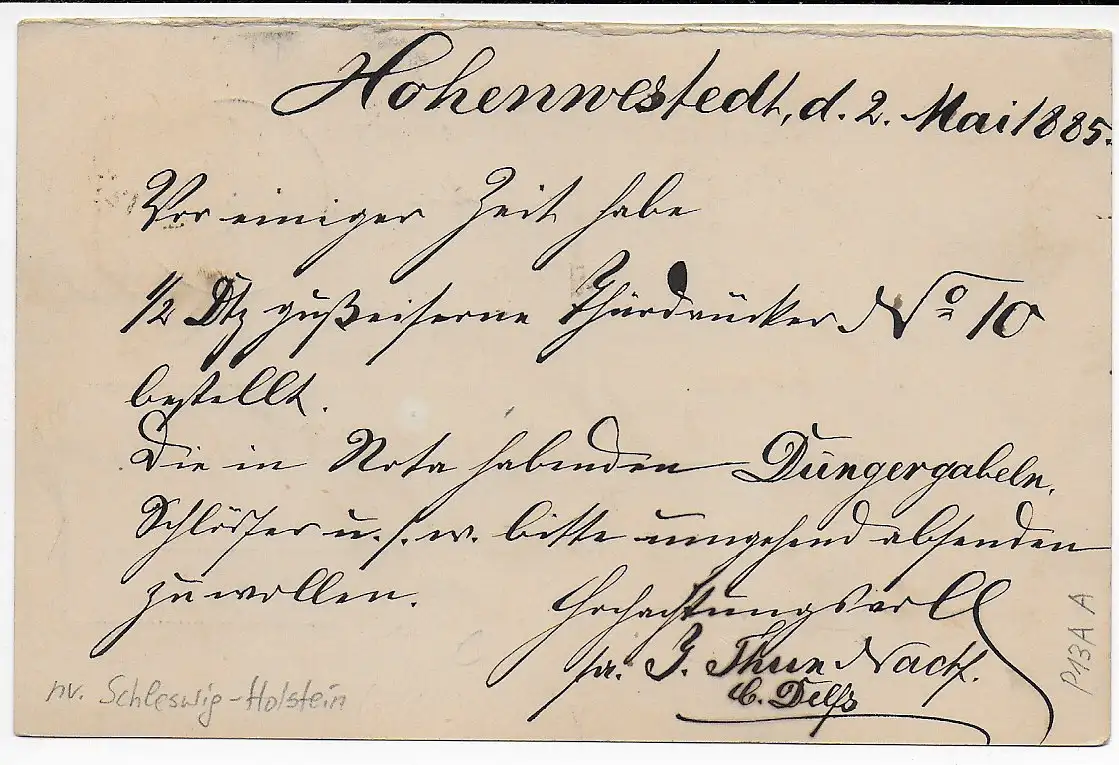 Hohenwestedt, d. 2. Mai 1885.
Vor einiger Zeit habe
1/2 Dtz gußeiserne Thürdrücker No 10
bestellt.
Die in Nota habenden Düngergabeln,
Schlösser u. s. w. bitte umgehend absenden
zu wollen.
Hochachtungsvoll
pa. J. Thun Nachf.
C. Delfs
nv. Schleswig-Holstein
P13A A